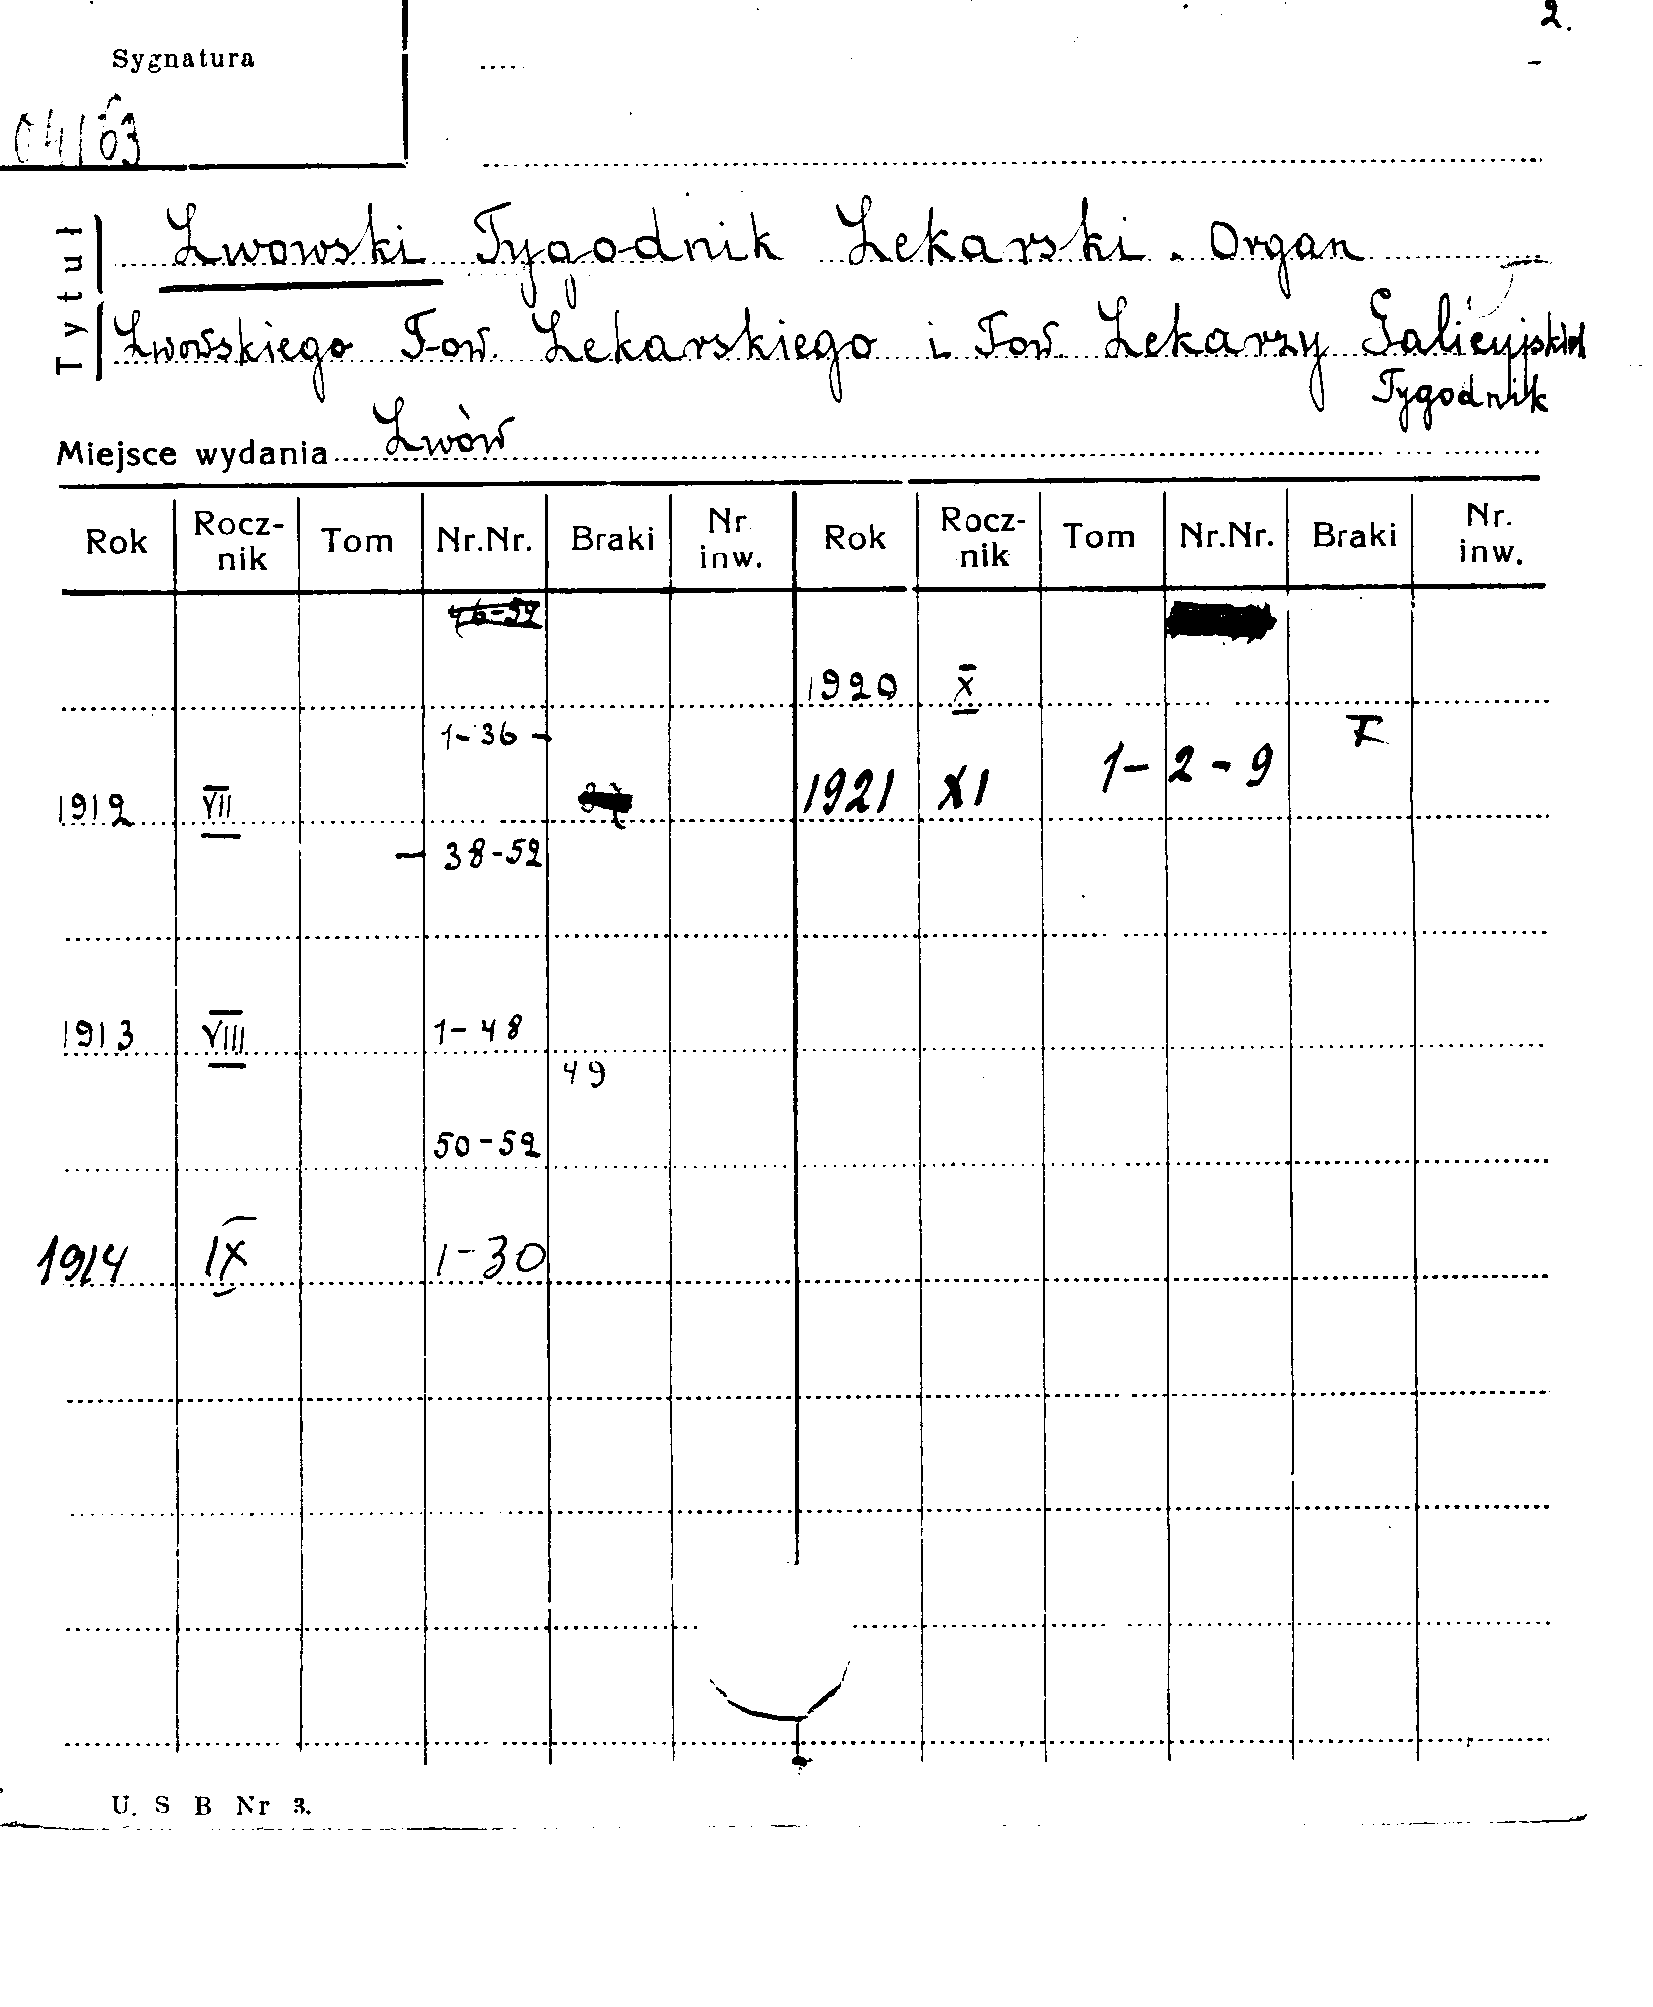 2.
Sygnatura
04163
Tytuł
Lwowski Tygodnik Lekarski. Organ
Lwowskiego Tow. Lekarskiego i Tow. Lekarzy Galicyjskich
Tygodnik
Miejsce wydania Lwów
Rok Rocz-nik Tom Nr.Nr. Braki Nr inw. Rok Rocz-nik Tom Nr.Nr. Braki Nr. inw.
1920 X
1-36 -
7
1912 VII
1921 XI 1-2-9
- 38-52
1913 VIII 1-48
49
50-52
1914 IX 1-30
U. S B Nr 3.